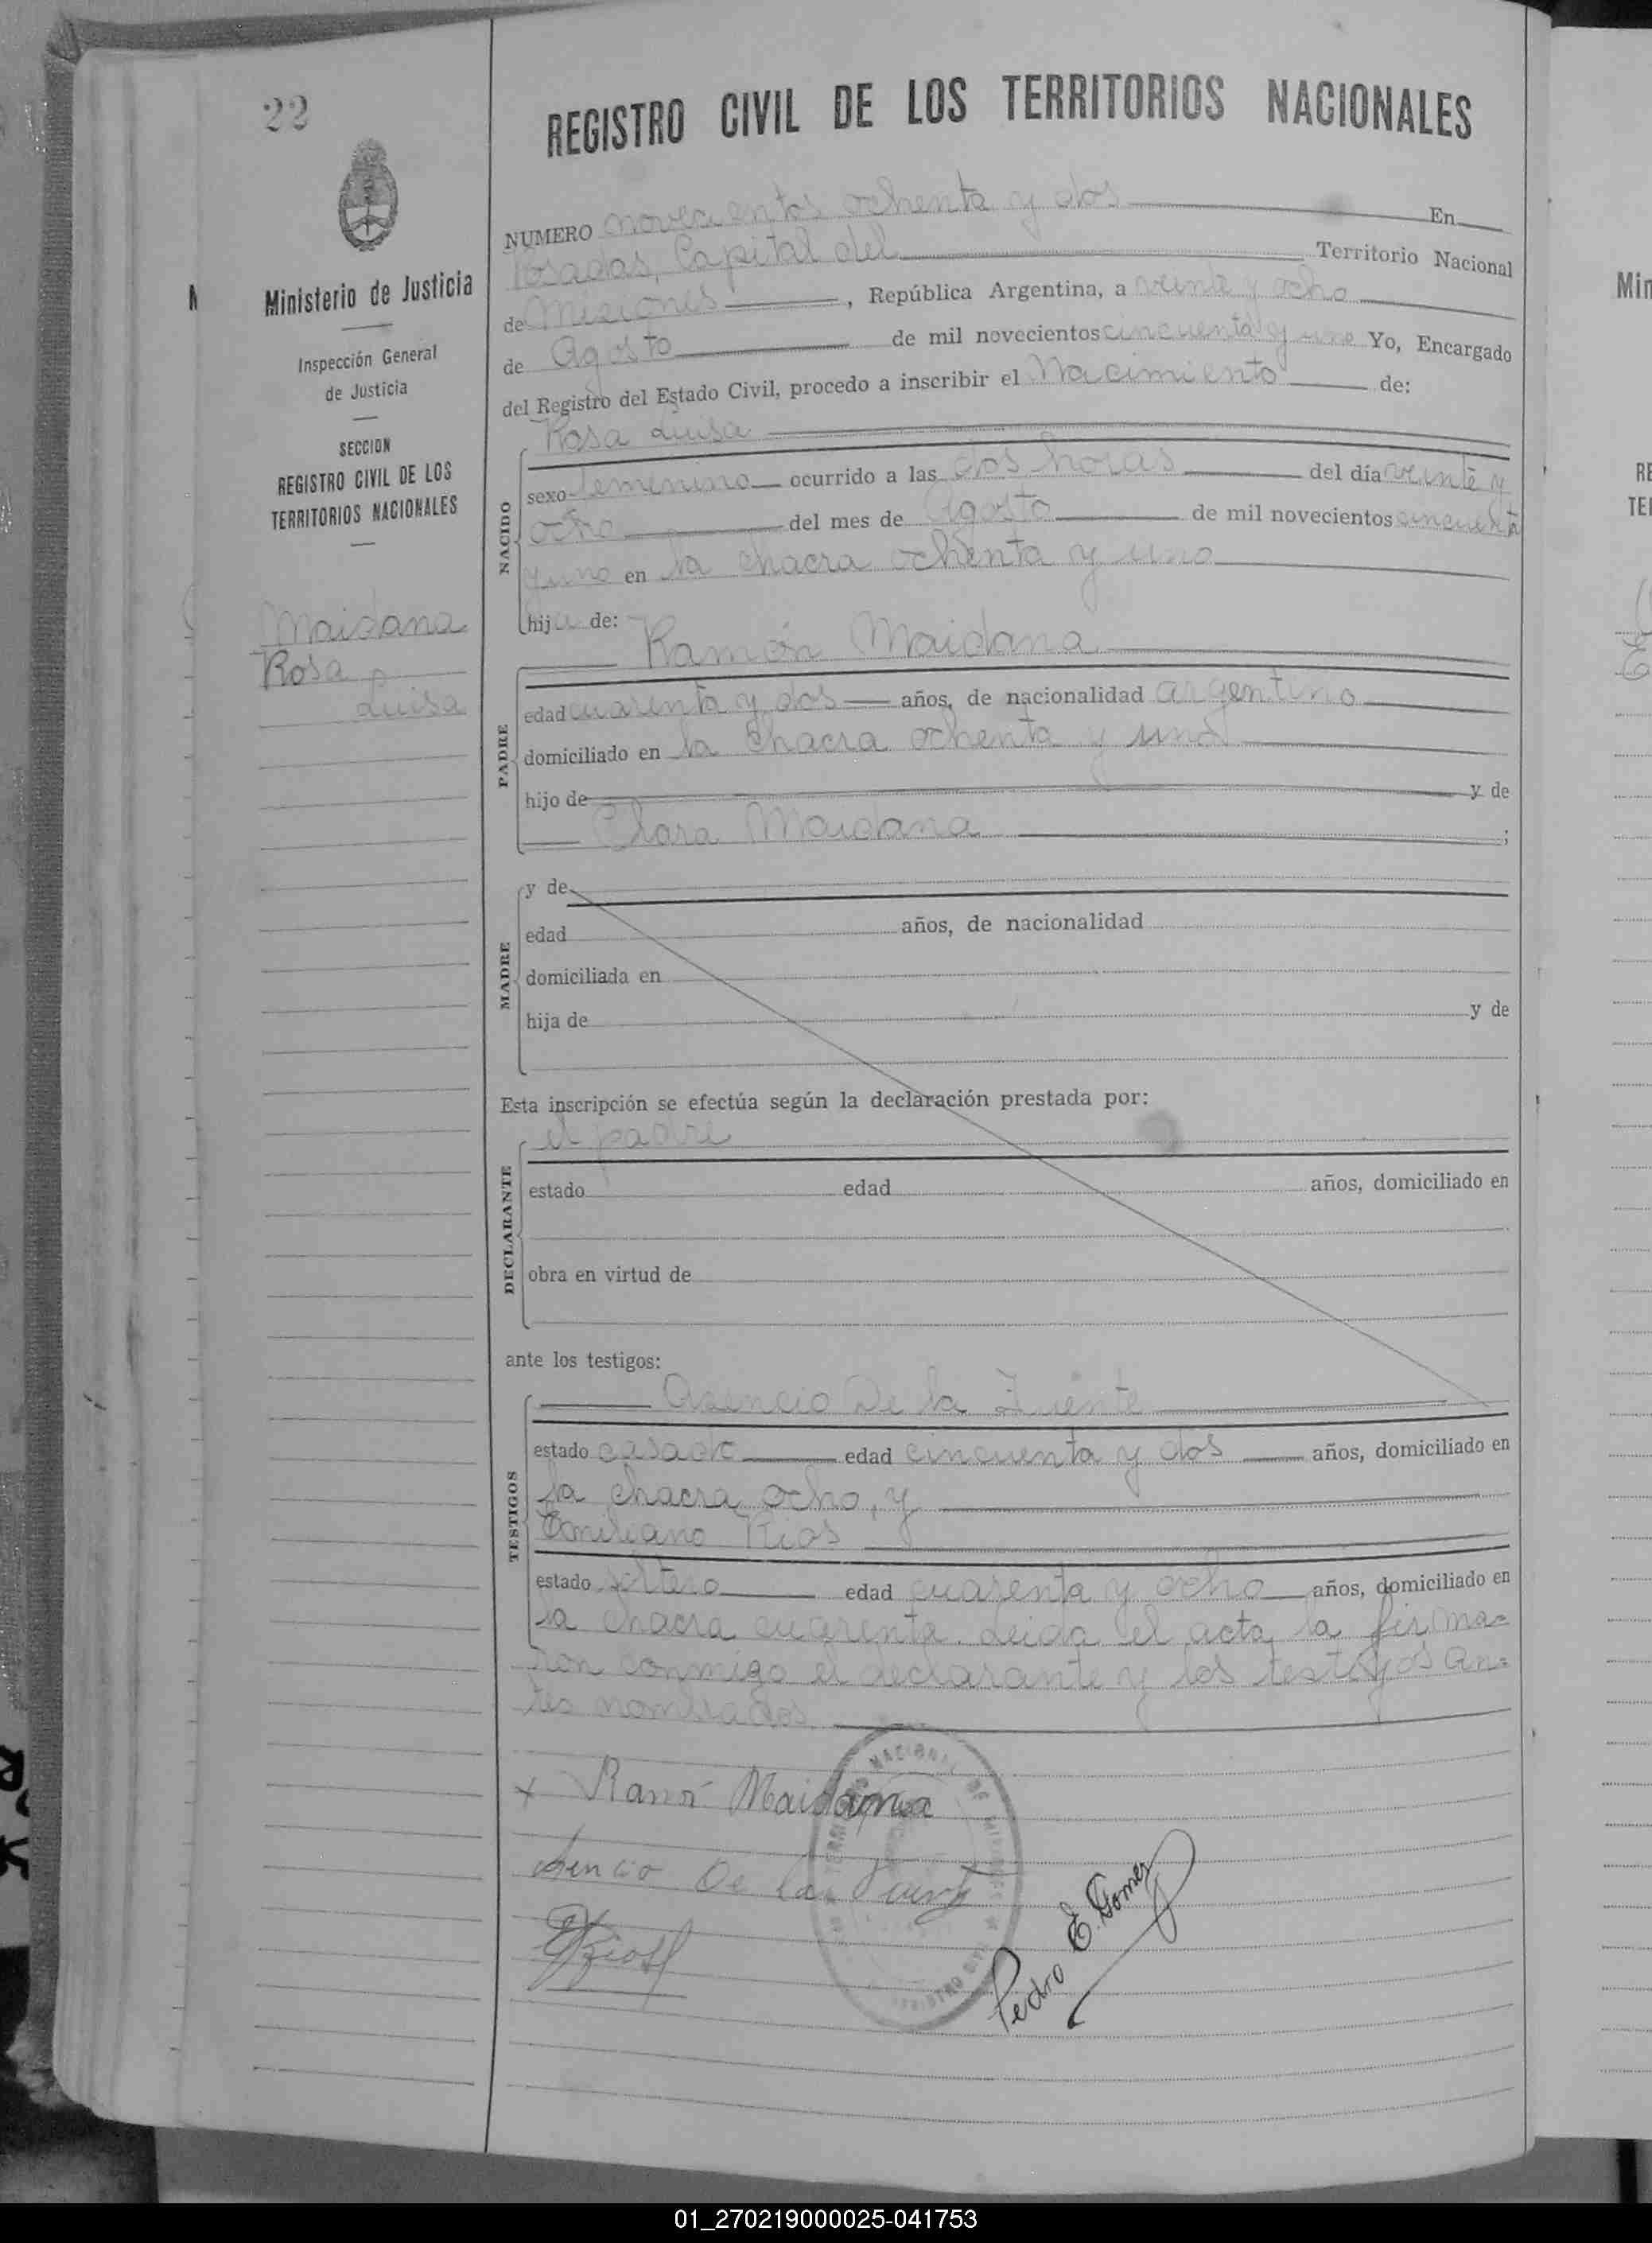 22
Ministerio de Justicia
Inspección General
de Justicia
SECCION
REGISTRO CIVIL DE LOS
TERRITORIOS NACIONALES
Maidana
Rosa
Luisa
REGISTRO CIVIL DE LOS TERRITORIOS NACIONALES
NUMERO novecientos ochenta y dos En
Posadas, Capital del Territorio Nacional
de Misiones, República Argentina, a veinte y ocho
de Agosto de mil novecientos cincuenta y uno Yo, Encargado
del Registro del Estado Civil, procedo a inscribir el Nacimiento de:
NACIDO
Rosa Luisa
sexo femenino ocurrido a las dos horas del día veinte y
ocho del mes de Agosto de mil novecientos cincuenta
y uno en la chacra ochenta y uno
hija de:
PADRE
Ramón Maidana
edad cuarenta y dos años, de nacionalidad argentino
domiciliado en la chacra ochenta y uno
hijo de y de
Clara Maidana ;
MADRE
y de
edad años, de nacionalidad
domiciliada en
hija de y de
Esta inscripción se efectúa según la declaración prestada por:
DECLARANTE
el padre
estado edad años, domiciliado en
obra en virtud de
ante los testigos:
TESTIGOS
Asencio De la Fuente
estado casado edad cincuenta y dos años, domiciliado en
la chacra ocho, y
Emiliano Rios
estado soltero edad cuarenta y ocho años, domiciliado en
la chacra cuarenta. Leida el acta, la firma=
ron conmigo el declarante y los testigos an=
tes nombrados.
Maidana
De la Fuente
Rios
Pedro E. Gomez
REGISTRO CIVIL
Min
RE
TE
01_270219000025-041753